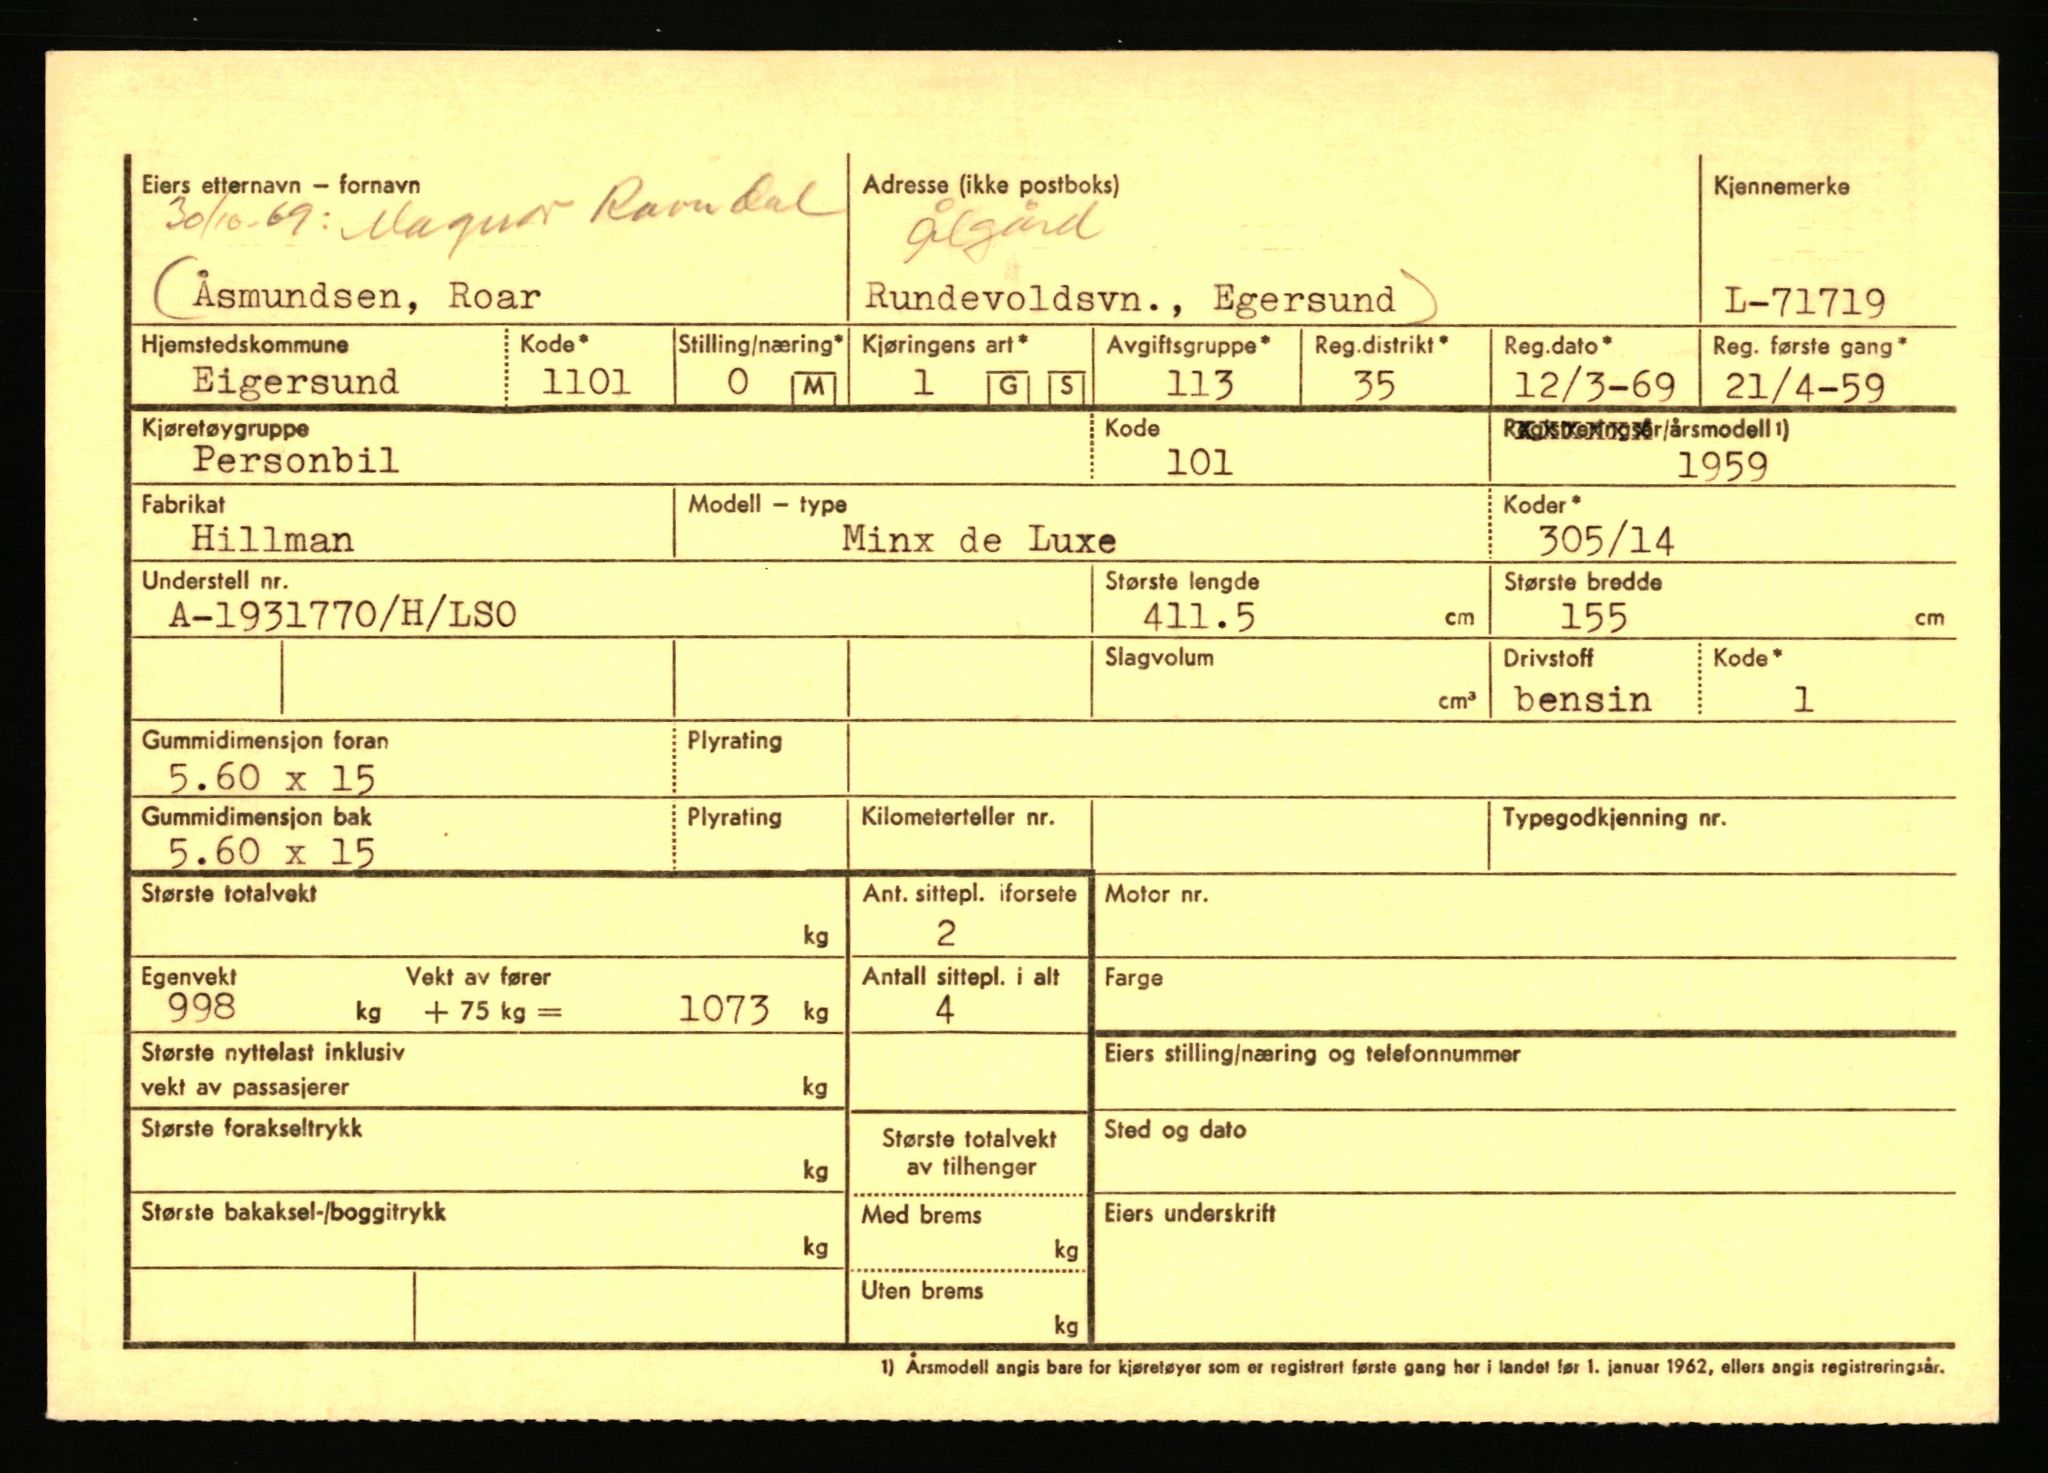 Eiers etternavn – fornavn Adresse (ikke postboks) Kjennemerke
30/10-69: Magnar Ravndal Ålgård
(Åsmundsen, Roar Rundevoldsvn., Egersund) L-71719
Hjemstedskommune Kode* Stilling/næring* Kjøringens art* Avgiftsgruppe* Reg.distrikt* Reg.dato* Reg. første gang*
Eigersund 1101 0 M 1 G S 113 35 12/3-69 21/4-59
Kjøretøygruppe Kode Registreringsår/årsmodell 1)
Personbil 101 1959
Fabrikat Modell – type Koder*
Hillman Minx de Luxe 305/14
Understell nr. Største lengde Største bredde
A-1931770/H/LSO 411.5 cm 155 cm
Slagvolum Drivstoff Kode*
cm³ bensin 1
Gummidimensjon foran Plyrating
5.60 x 15
Gummidimensjon bak Plyrating Kilometerteller nr. Typegodkjenning nr.
5.60 x 15
Største totalvekt Ant. sittepl. iforsete Motor nr.
kg 2
Egenvekt Vekt av fører Antall sittepl. i alt Farge
998 kg + 75 kg = 1073 kg 4
Største nyttelast inklusiv Eiers stilling/næring og telefonnummer
vekt av passasjerer kg
Største forakseltrykk Største totalvekt Sted og dato
kg av tilhenger
Største bakaksel-/boggitrykk Med brems Eiers underskrift
kg kg
Uten brems
kg
1) Årsmodell angis bare for kjøretøyer som er registrert første gang her i landet før 1. januar 1962, ellers angis registreringsår.